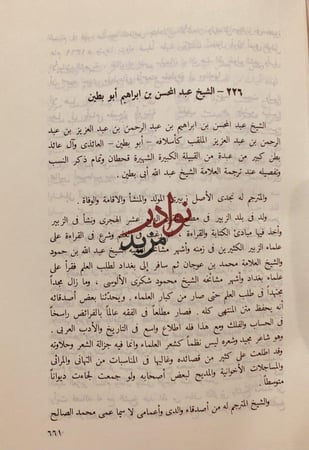 ٢٢٦ - الشيخ عبد المحسن بن ابراهيم أبو بطين
الشيخ عبد المحسن بن ابراهيم بن عبد الرحمن بن عبد العزيز بن عبد
الرحمن بن عبد العزيز الملقب كأسلافه - أبو بطين - العائذى وآل عائذ
بطن كبير من عبدة من القبيلة الكبيرة الشهيرة قحطان وتمام ذكر النسب
وتفصيله عند ترجمة العلامة الشيخ عبد الله أبى بطين .
والمترجم له نجدى الأصل زبيرى المولد والمنشأ والاقامة والوفاة .
ولد فى بلد الزبير فى عشر الهجرى ونشأ فى الزبير
وأخذ فيها مبادئ الكتابة والقراءة وشرع فى القراءة على
علماء الزبير الكثيرين فى زمنه وأشهر الشيخ عبد الله بن حمود
والشيخ العلامة محمد بن عوجان ثم سافر إلى بغداد لطلب العلم فقرأ على
علماء بغداد وأشهر مشائخه الشيخ محمود شكرى الألوسى . وما زال مجداً
مجتهداً فى طلب العلم حتى صار من كبار العلماء . ويحدثنا بعض أصدقائه
أنه يحفظ متن المنتهى كله . فصار مطلعاً فى الفقه عالماً بالفرائض راسخاً
فى الحساب والفلك ومع هذا فله اطلاع واسع فى التاريخ والأدب العربى .
وهو شاعر مجيد وشعره ليس نظماً كشعر العلماء وانما فيه جزالة الشعر وحلاوته
وقد اطلعت على كثير من قصائده وغالبها فى المناسبات من التهانى والمراثى
والمساجلات الأخوانية والمديح لبعض أصحابه ولو جمعت لجاءت ديواناً
متوسطاً .
والشيخ المترجم له من أصدقاء والدى وأعمامى لا سيما عمى محمد الصالح
٦٦١
نوادر
مزيد